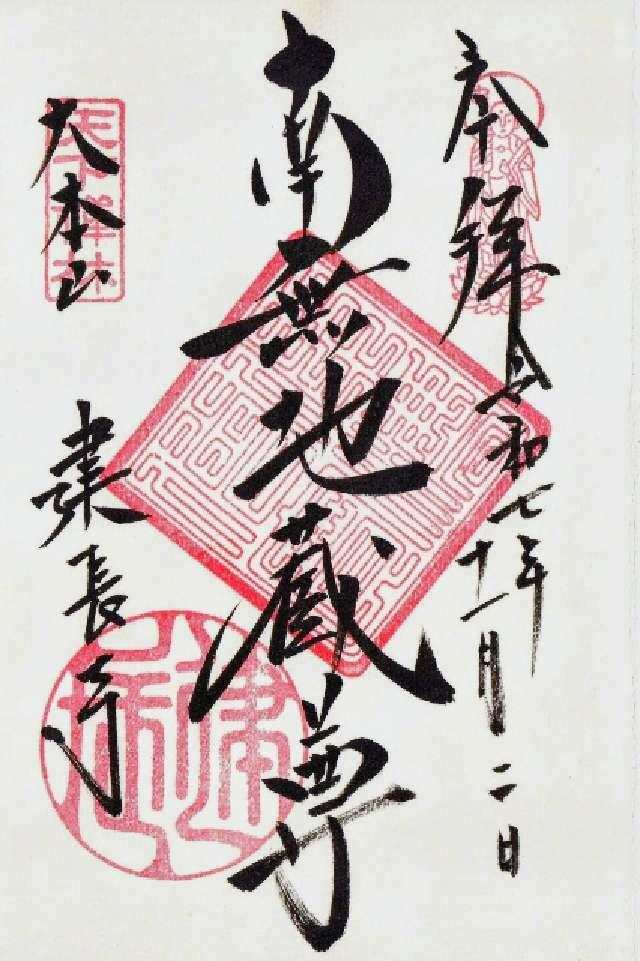 奉拝 令和七年十一月二日
南無地蔵尊
大本山
建長寺
天下禅林